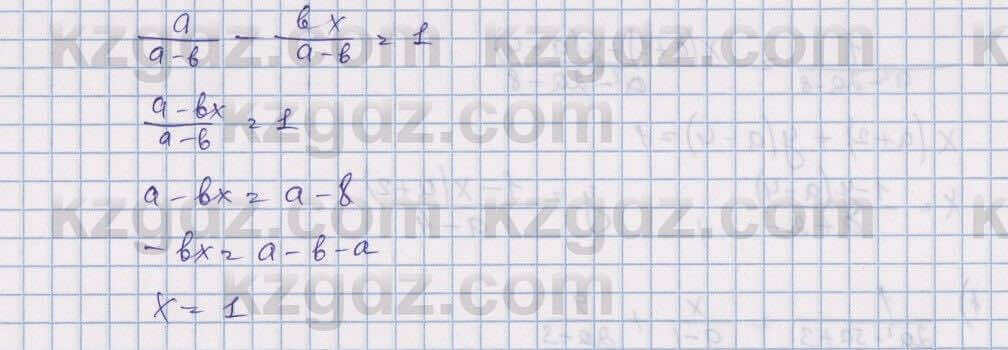 a/(a-в) - вx/(a-в) = 1
(a-вx)/(a-в) = 1
a - вx = a - в
- вx = a - в - a
x = 1
kzgdz.com kzgdz.com
kzgdz.com
kzgdz.com kzgdz.com
kzgdz.com